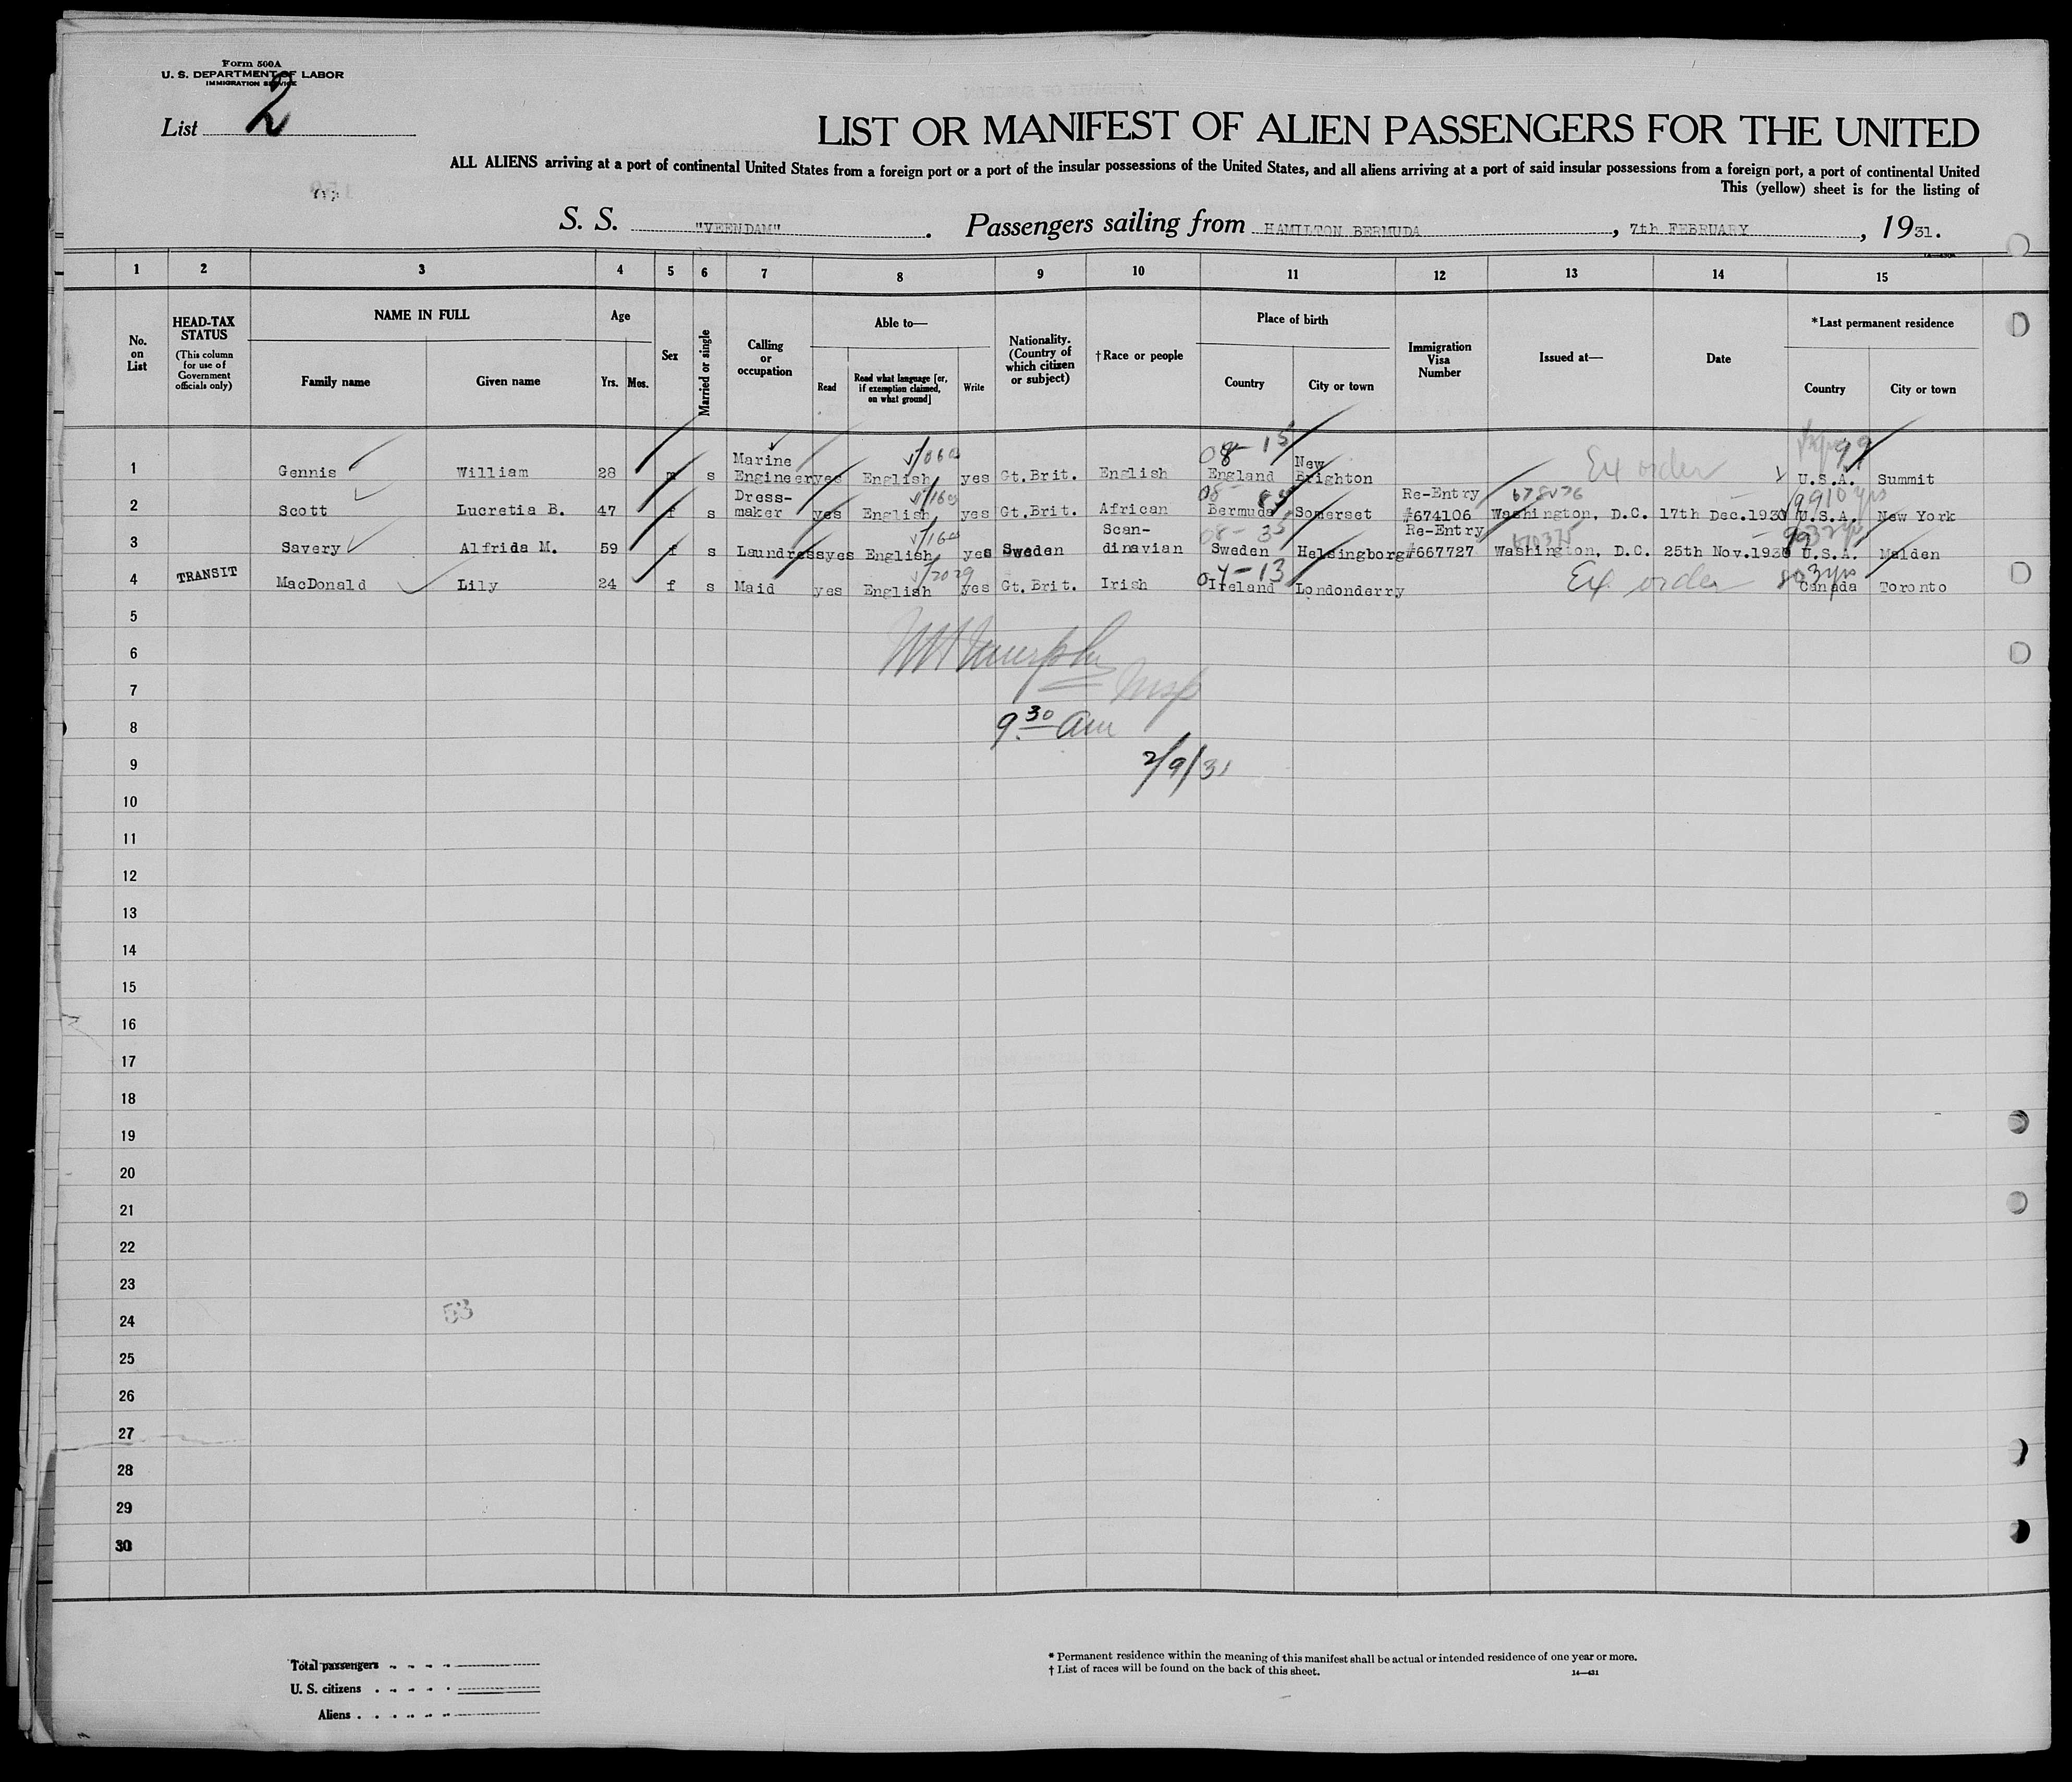 Form 500A
U. S. DEPARTMENT OF LABOR
IMMIGRATION SERVICE
List 2
LIST OR MANIFEST OF ALIEN PASSENGERS FOR THE UNITED
ALL ALIENS arriving at a port of continental United States from a foreign port or a port of the insular possessions of the United States, and all aliens arriving at a port of said insular possessions from a foreign port, a port of continental United
This (yellow) sheet is for the listing of
S. S. "VEENDAM". Passengers sailing from HAMILTON BERMUDA, 7th FEBRUARY, 1931.
1 2 3 4 5 6 7 8 9 10 11 12 13 14 15
No. on List
HEAD-TAX STATUS (This column for use of Government officials only)
NAME IN FULL
Family name Given name
Age
Yrs. Mos.
Sex
Married or single
Calling or occupation
Able to—
Read Read what language [or, if exemption claimed, on what ground] Write
Nationality. (Country of which citizen or subject)
†Race or people
Place of birth
Country City or town
Immigration Visa Number
Issued at—
Date
*Last permanent residence
Country City or town
1 Gennis William 28 m s Marine Engineer yes English yes Gt.Brit. English 08-15 England New Brighton Ex order 99 U.S.A. Summit
2 Scott Lucretia B. 47 f s Dress-maker yes English yes Gt.Brit. African 08- Bermuda Somerset Re-Entry #674106 Washington, D.C. 17th Dec.1930 99 10 yrs U.S.A. New York
3 Savery Alfrida M. 59 f s Laundress yes English yes Sweden Scan-dinavian 08-35 Sweden Helsingborg Re-Entry #667727 Washington, D.C. 25th Nov.1930 U.S.A. Malden
4 TRANSIT MacDonald Lily 24 f s Maid yes English yes Gt.Brit. Irish 04-13 Ireland Londonderry Ex order 3yrs Canada Toronto
5
6
7
8
9
10
11
12
13
14
15
16
17
18
19
20
21
22
23
24
25
26
27
28
29
30
Murphy
Insp
9.30 am
2/9/31
53
Total passengers
U. S. citizens
Aliens
* Permanent residence within the meaning of this manifest shall be actual or intended residence of one year or more.
† List of races will be found on the back of this sheet.
14—431